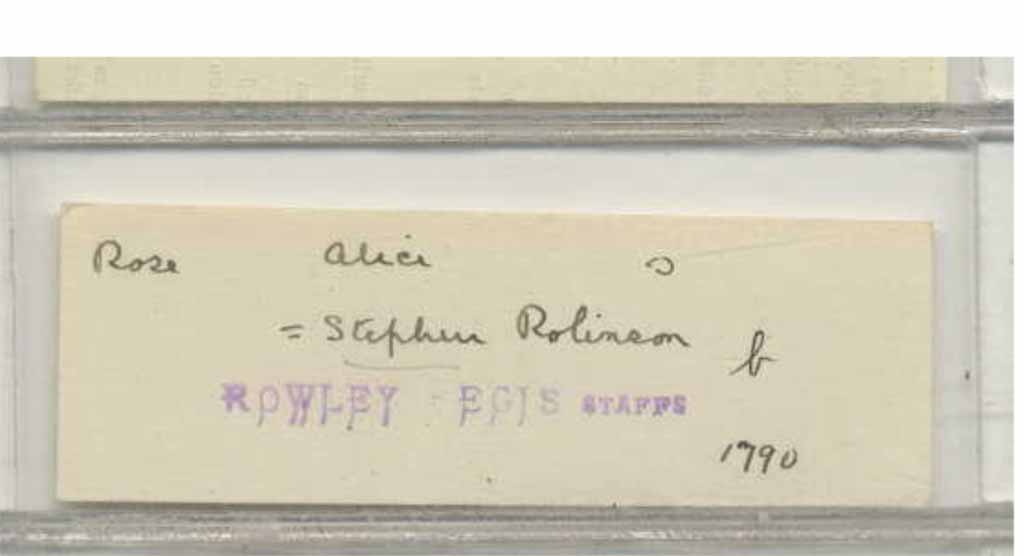 Rose Alice
= Stephen Rolinson b
ROWLEY EGIS STAFFS
1790